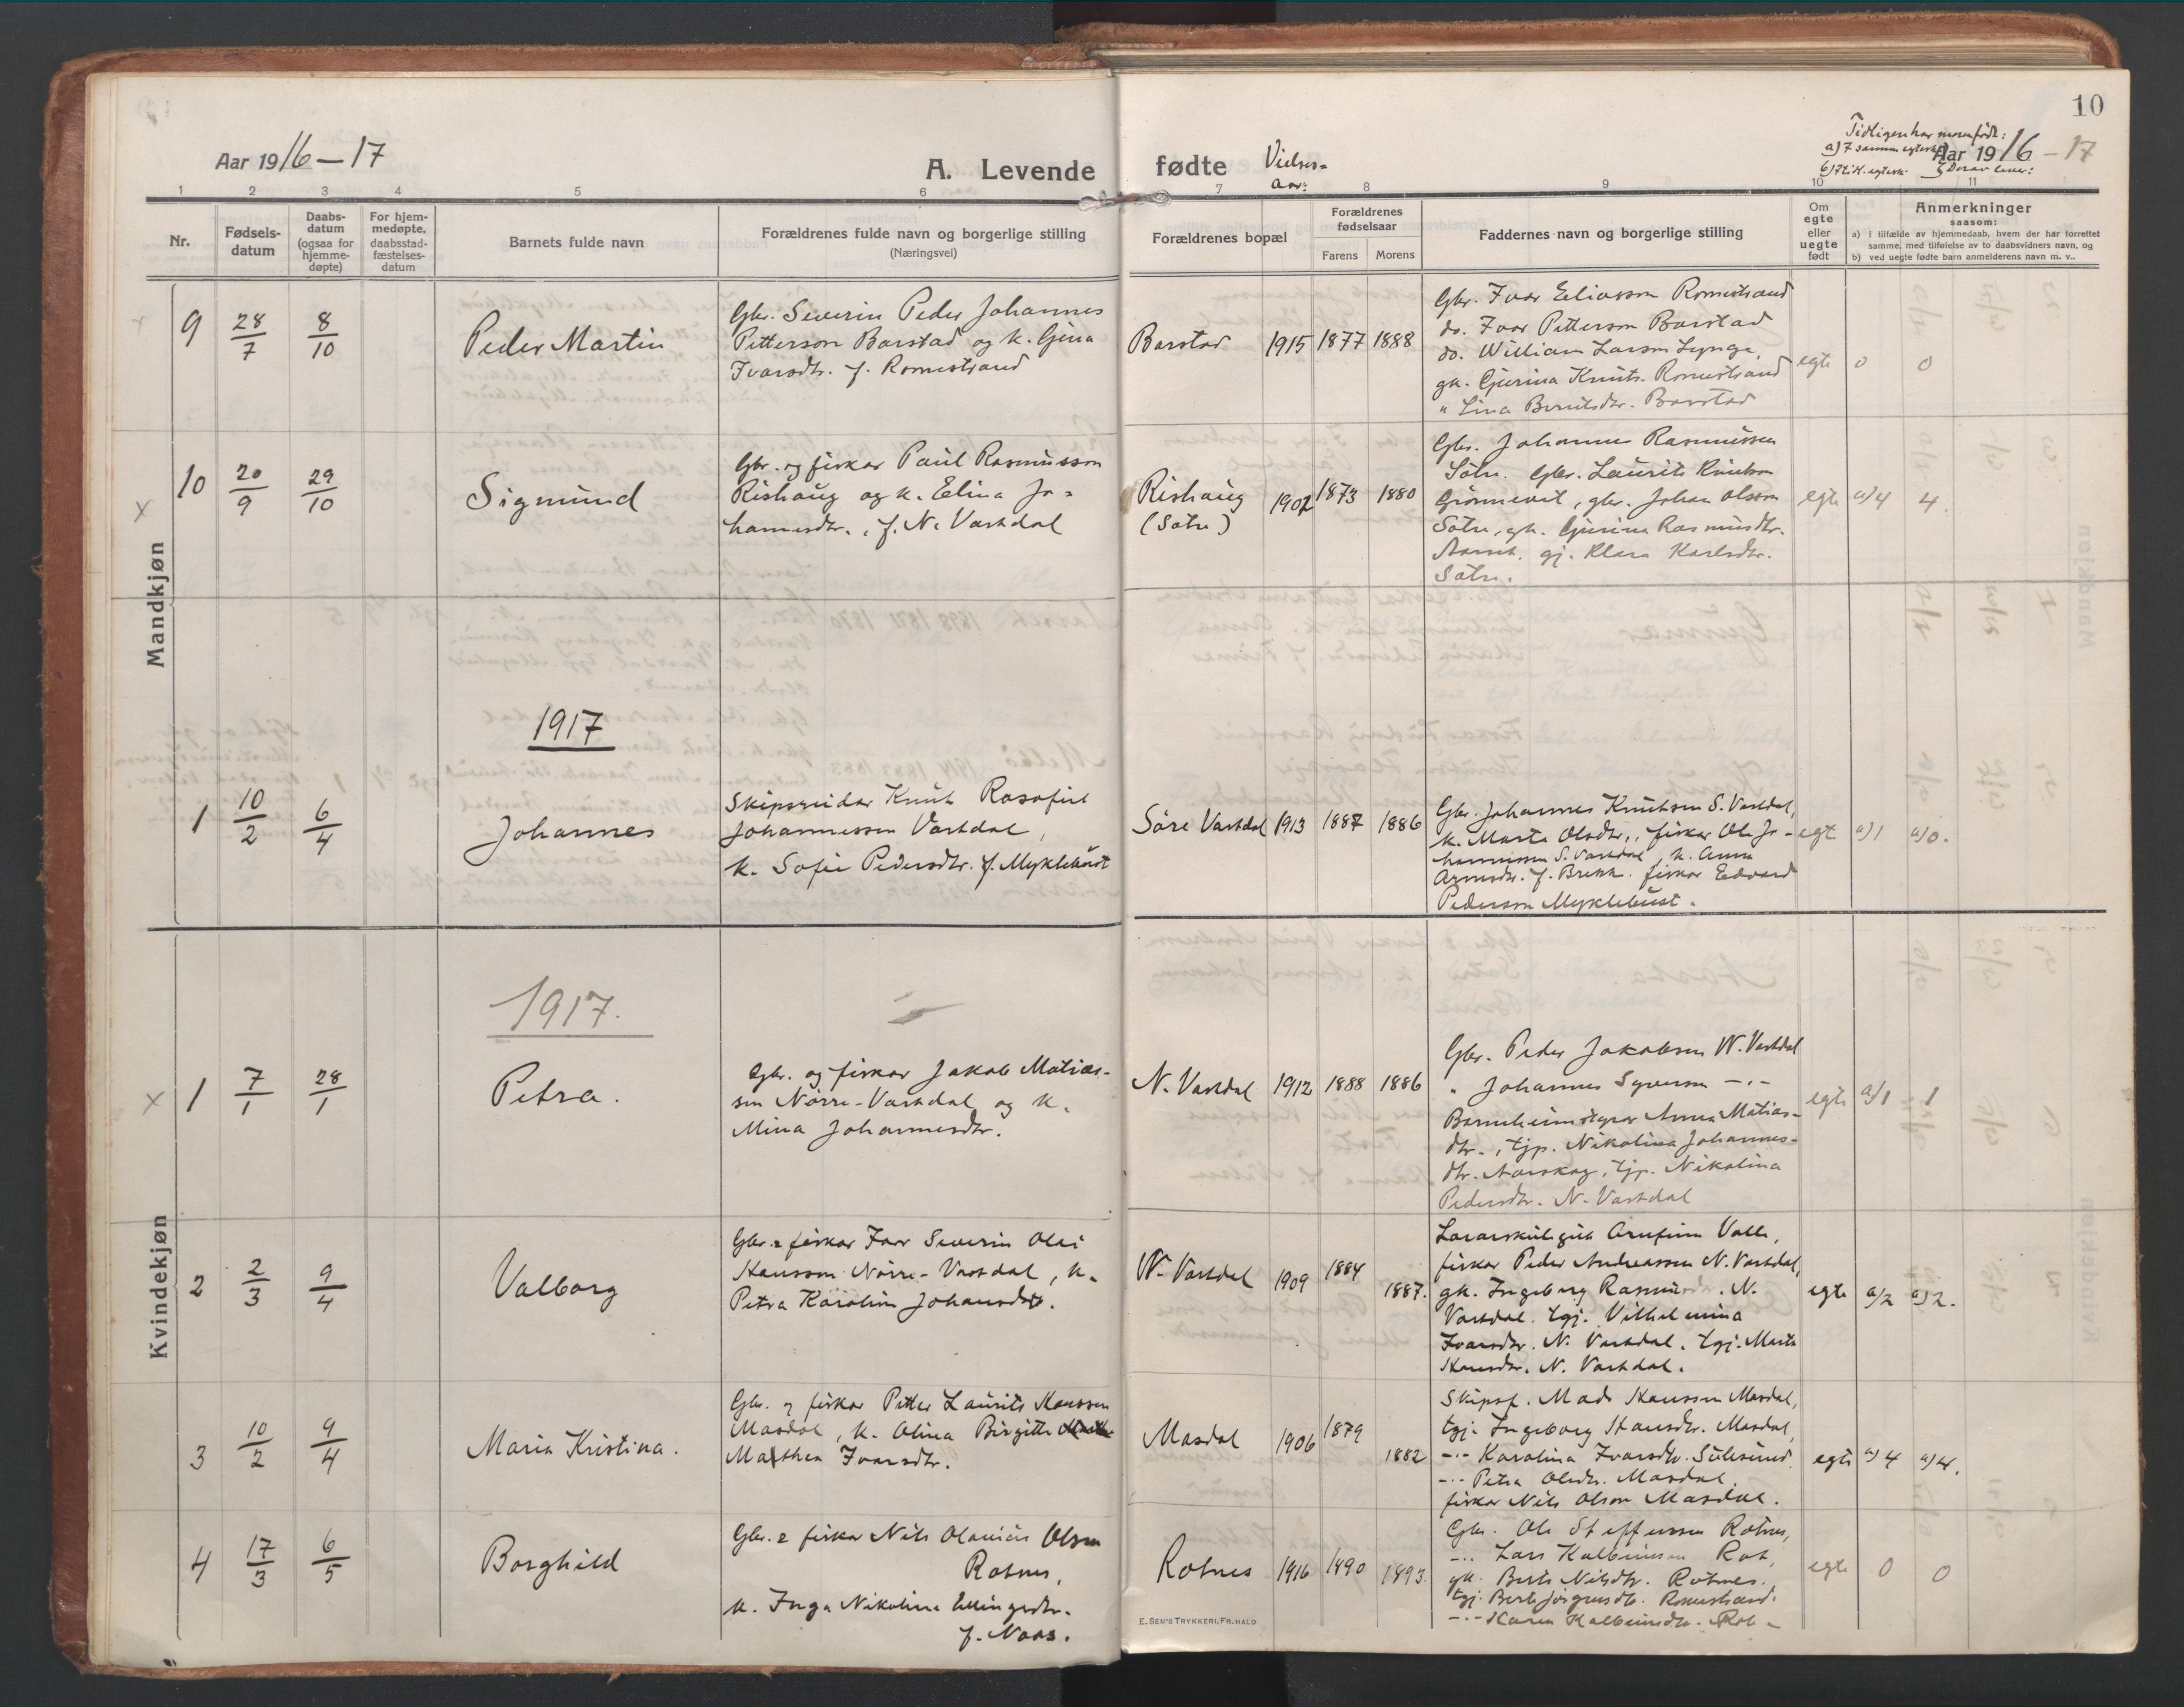 10
Aar 1916-17
A. Levende
fødte
Vielses-
aar:
Tidligere har moren født:
a) 7 samme egtesk.
Derav lever:
Aar 1916-17
1 2 3 4 5 6 7 8 9 10 11
Nr.
Fødsels-
datum
Daabs-
datum
(ogsaa for
hjemme-
døpte)
For hjem-
medøpte,
daabsstad-
fæstelses-
datum
Barnets fulde navn
Forældrenes fulde navn og borgerlige stilling
(Næringsvei)
Forældrenes bopæl
Forældrenes
fødselsaar
Farens Morens
Faddernes navn og borgerlige stilling
Om
egte
eller
uegte
født
Anmerkninger
saasom:
a) i tilfælde av hjemmedaab, hvem der har forrettet
samme, med tilføielse av to daabsvidners navn, og
b) ved uegte fødte barn anmelderens navn m. v..
Mandkjøn
9 28/7 8/10 Peder Martin
Gbr. Severin Peder Johannes
Petterson Barstad og k. Gjina
Ivarsdtr. f. Romestrand
Barstad 1915 1877 1888
Gbr. Ivar Eliasson Romestrand
do. Ivar Petterson Barstad
do. William Larson Lynge,
gk. Gjurina Knuts. Romestrand
" Lina Berntsdtr. Barstad
egte 0 0
x 10 20/9 29/10 Sigmund
Gbr. og fiskar Paul Rasmusson
Rishaug og k. Elina Jo-
hannesdtr., f. N. Vartdal
Rishaug
(Sætre)
1902 1873 1880
Gbr. Johannes Rasmussen
Sætre. Gbr. Laurits Knutson
Grønnevet, gbr. Johan Olsson
Sætre, gk. Gjurina Rasmusdtr.
gj. Klara Karlsdtr.
Sætre.
egte a/4 4.
1917
1 10/2 6/4 Johannes
Knut Rasofiel
Johannessen Vartdal,
k. Sofie Pedersdtr. f. Myklebust
Søre Vartdal 1913 1887 1886
Gbr. Johannes Knutson S. Vartdal,
k. Marte Olsdtr., fiskar Ole Jo-
hannessen S. Vartdal, k. Anna
f. Brekk. fiskar Edvard
Pederson Myklebust.
egt a)1 a)0.
Kvindekjøn
1917.
x 1 7/1 28/1 Petra.
Gbr. og fiskar Jakob Matias-
sen Nørre-Vartdal og k.
Mina Johannesdtr.
N. Vartdal 1912 1888 1886
Gbr. Peder Jakobsen N. Vartdal
" Johannes Syverson -"-
Barneheimstyrer Anna Matias-
dtr., tjp. Nikolina Johannes-
dtr. Aarskog, tjp. Nikolina
Pedersdtr. N. Vartdal
egte a/1 1
2 2/3 9/4 Valborg
Gbr. & fiskar Ivar Severin Olai
Hansson Nørre-Vartdal, k.
Petra Karolina Johansdtr.
N. Vartdal 1909 1884 1887.
Lærarskulegut Arnfinn Valle,
fiskar Peder Andreassen N. Vartdal,
gk. Ingeborg Rasmusdtr. N.
Vartdal. tgj. Vilhelmina
Ivarsdtr. N. Vartdal. tgj. Marta
Hansdtr. N. Vartdal.
egte a/2 a)2.
3 10/2 9/4 Maria Kristina.
Gbr. & fiskar Petter Laurits Hanssen
Masdal, k. Olina Birgitte
Mathea Ivarsdtr.
Masdal 1906 1879 1882
Skipsf. Mads Hanssen Masdal,
tgj. Ingeborg Hansdtr. Masdal,
-"- Karolina Ivarsdtr. Sulesund
-"- Petra Olsdtr. Masdal.
fiskar Nils Olson Masdal.
egte a) 4 a)4.
4 17/3 6/5 Borghild
Gbr. & fiskar Nils Olauius Olsen
Rotnes,
k. Inga Nikoline Ellingsdtr.
f. Naas.
Rotnes 1916 1890 1893.
Gbr. Ole Steffensen Rotnes,
-"- Lars Kolbeinsen Rot,
gk. Berte Nilsdtr. Rotnes.
tgj. Berte Jørgensdtr. Romestrand.
-"- Karen Kolbeinsdtr. Rot-
egte 0 0
E. SEM'S TRYKKERI, FR.HALD